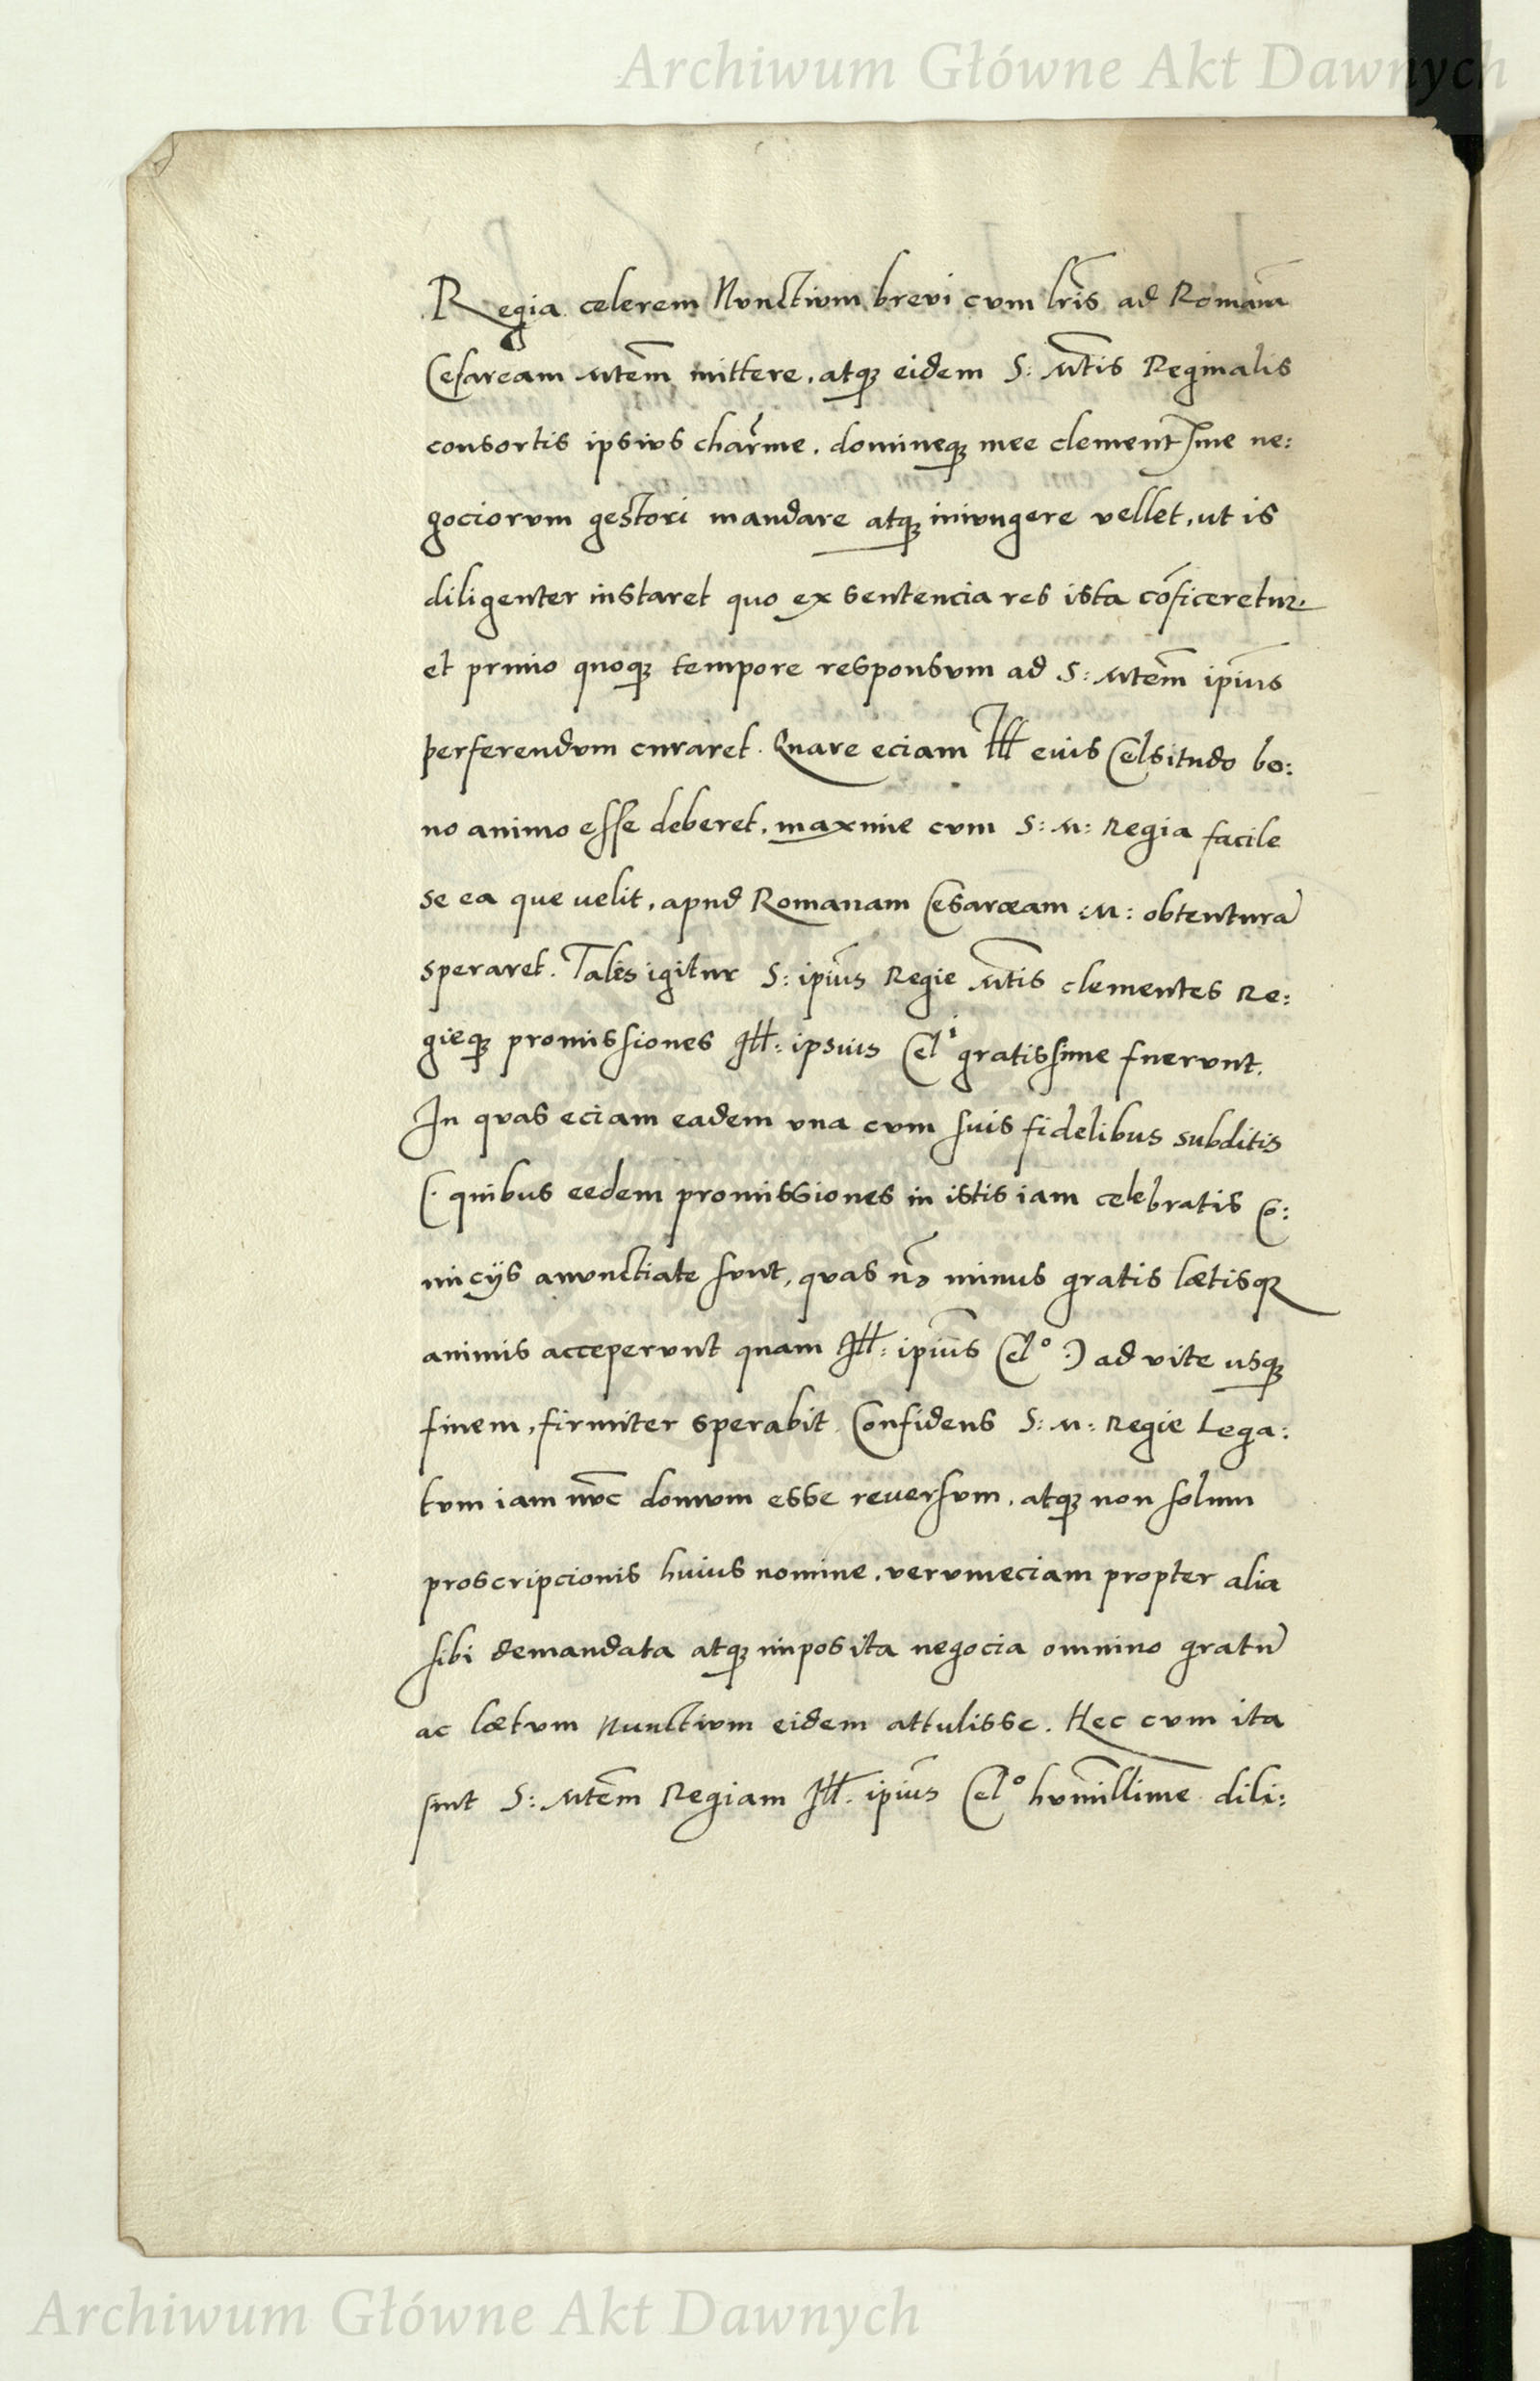 Archiwum Główne Akt Dawnych
Regia celerem Nunctium brevi cum lr̃is ad Romanã
Cesaream Mtem̃ mittere, atqꝫ eidem S: Mt̃is Reginalis
consortis ipsius char̃me, domineqꝫ mee clement͂sme ne:
gociorum gestori mandare atqꝫ iniungere vellet, ut is
diligenter instaret quo ex sentencia res ista cõficeretur.
et primo quoqꝫ tempore responsum ad S: Mtem̃ ipĩus
perferendum curaret. Quare eciam Ill eius Celsitudo bo:
no animo esse deberet, maxime cum S: M: Regia facile
se ea que uelit, apud Romanam Cesaream :M: obtenturã
speraret. Tales igitur S: ipĩus Regie Mt̃is clementes Re:
gieqꝫ promissiones Ill: ipsius Celⁱ gratissime fuerunt.
In quas eciam eadem una cum suis fidelibus subditis
(· quibus eedem promissiones in istis iam celebratis Cõ:
micijs anunctiate sunt, quas nõ minus gratis lætisqꝫ
animis acceperunt quam Ill: ipĩus Celº ·) ad vite usqꝫ
finem, firmiter sperabit. Confidens S: M: Regie Lega:
tum iam nũc domum esse reversum, atqꝫ non solum
proscripcionis huius nomine, verumeciam propter alia
sibi demandata atqꝫ imposita negocia omnino gratũ
ac lætum Nunctium eidem attulisse. Hec cum ita
sint S: Mtem̃ Regiam Ill. ipĩus Celº humillime dili:
Archiwum Główne Akt Dawnych